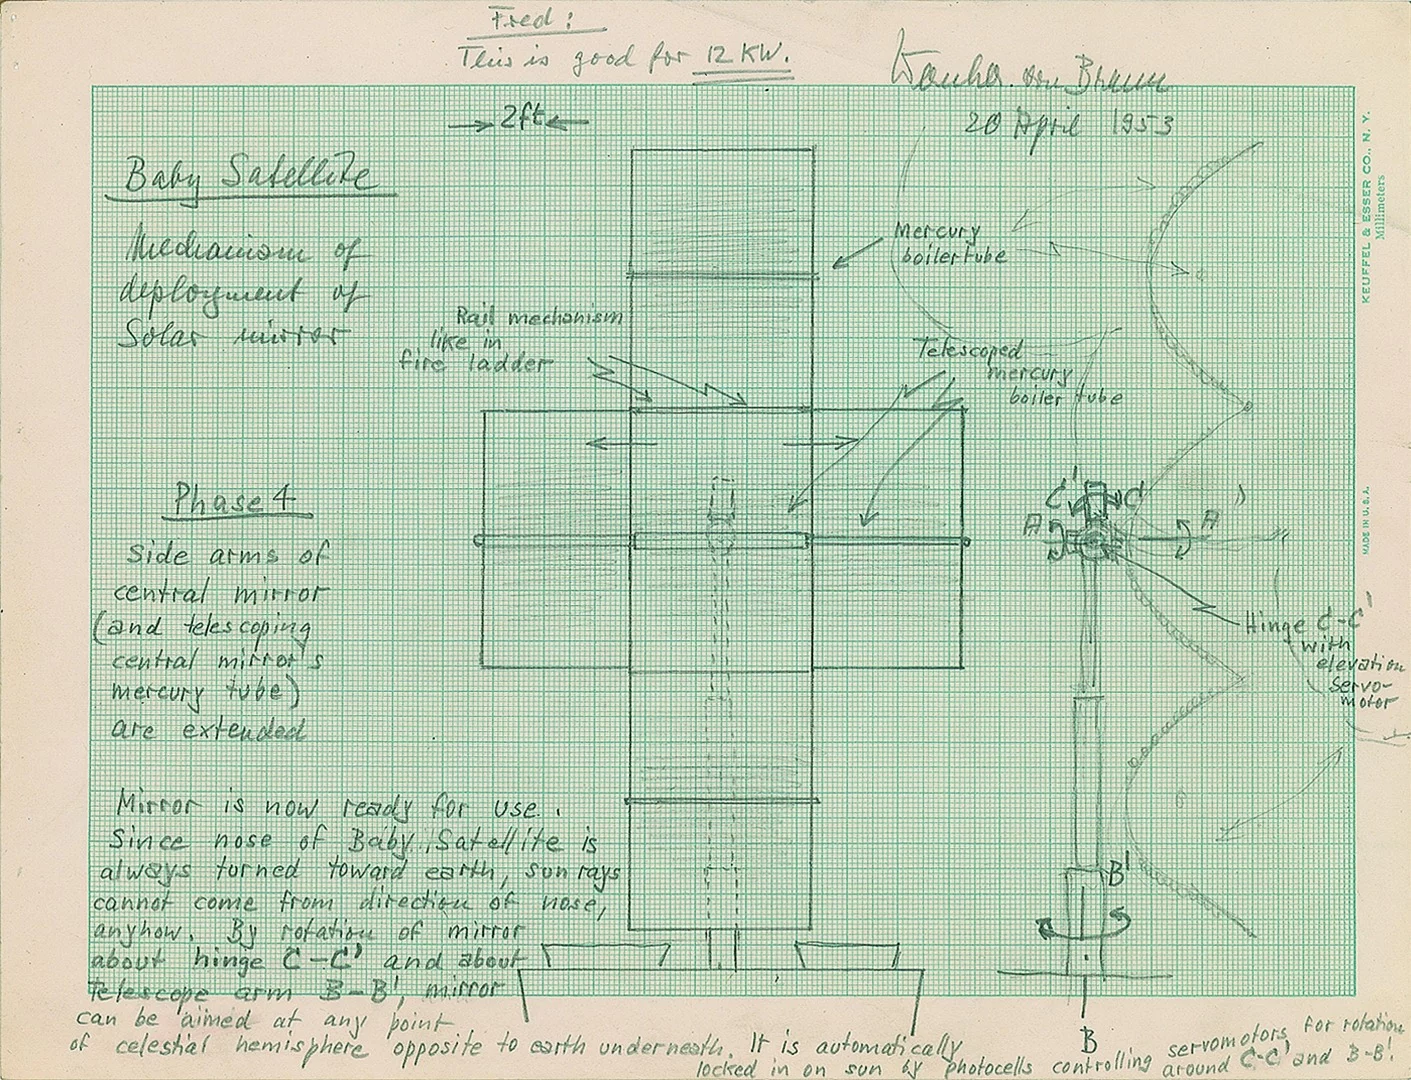 Fred:
This is good for 12 KW.
Wernher von Braun
20 April 1953
2ft
Baby Satellite
Mechanism of
deployment of
Solar mirror
Mercury
boiler tube
Rail mechanism
like in
fire ladder
Telescoped
mercury
boiler tube
Phase 4
Side arms of
central mirror
(and telescoping
central mirror's
mercury tube)
are extended
C'
C
A
A'
Hinge C-C'
with
elevation
servo-
motor
Mirror is now ready for use.
Since nose of Baby Satellite is
always turned toward earth, sun rays
cannot come from direction of nose,
anyhow. By rotation of mirror
about hinge C-C' and about
telescope arm B-B', mirror
can be aimed at any point
of celestial hemisphere opposite to earth underneath. It is automatically
locked in on sun by photocells controlling servomotors for rotation
around C-C' and B-B'.
B'
B
KEUFFEL & ESSER CO., N. Y.
Millimeters
MADE IN U. S. A.